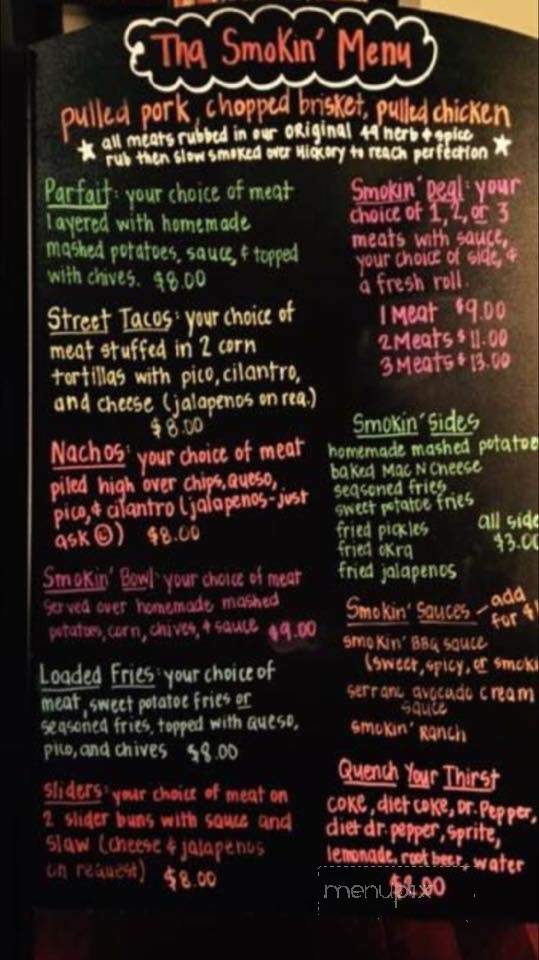 Tha Smokin' Menu
pulled pork, chopped brisket, pulled chicken
all meats rubbed in our original 44 herb + spice
rub then slow smoked over Hickory to reach perfection
Parfait: your choice of meat
layered with homemade
mashed potatoes, sauce, + topped
with chives. $8.00
Street Tacos: your choice of
meat stuffed in 2 corn
tortillas with pico, cilantro,
and cheese (jalapenos on req.)
$8.00
Nachos: your choice of meat
piled high over chips, queso,
pico, + cilantro (jalapenos-just
ask ☺) $8.00
Smokin' Bowl: your choice of meat
served over homemade mashed
potatoes, corn, chives, + sauce $9.00
Loaded Fries: your choice of
meat, sweet potatoe fries or
seasoned fries, topped with queso,
pico, and chives $8.00
Sliders: your choice of meat on
2 slider buns with sauce and
slaw (cheese + jalapenos
on request) $8.00
Smokin' Deal: your
choice of 1, 2, or 3
meats with sauce,
your choice of side, +
a fresh roll.
1 Meat $9.00
2 Meats $11.00
3 Meats $13.00
Smokin' Sides
homemade mashed potatoe
baked Mac N Cheese
seasoned fries
sweet potatoe fries
fried pickles
fried okra
fried jalapenos
all side
$3.00
Smokin' Sauces - add
for $
smokin' BBQ sauce
(sweet, spicy, or smoki
serrano avocado cream
sauce
smokin' Ranch
Quench Your Thirst
coke, diet coke, Dr. Pepper,
diet dr. pepper, sprite,
lemonade, root beer, water
menupix